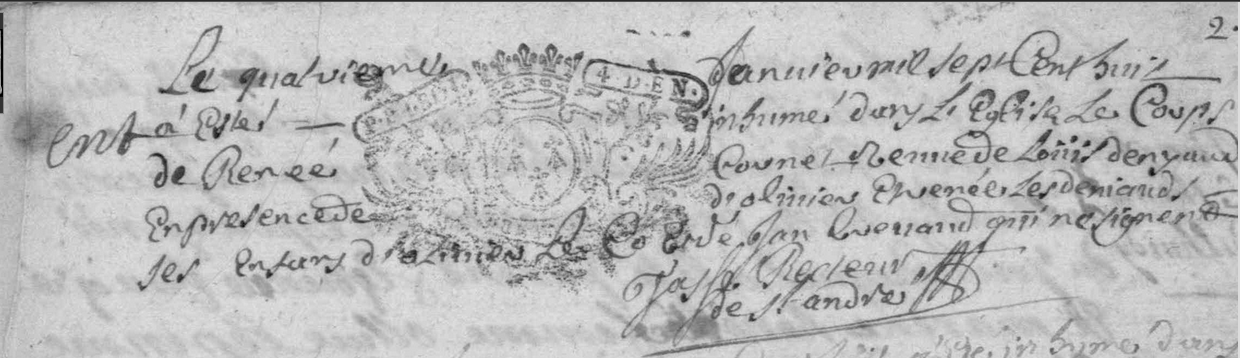 2.
Le quatrieme Janvier mil sept Cent huit
4. DEN.
ent a Esté inhumé dans L'Eglise Le Corps
de Reneé Cornet Venue de Loüis denyaud
En presence de d'olivier Et renée Les deniauds
ses Enfans d'olivier Le Co Et de Jan qui ne signent
Recteur
de St andré
inhumé dans